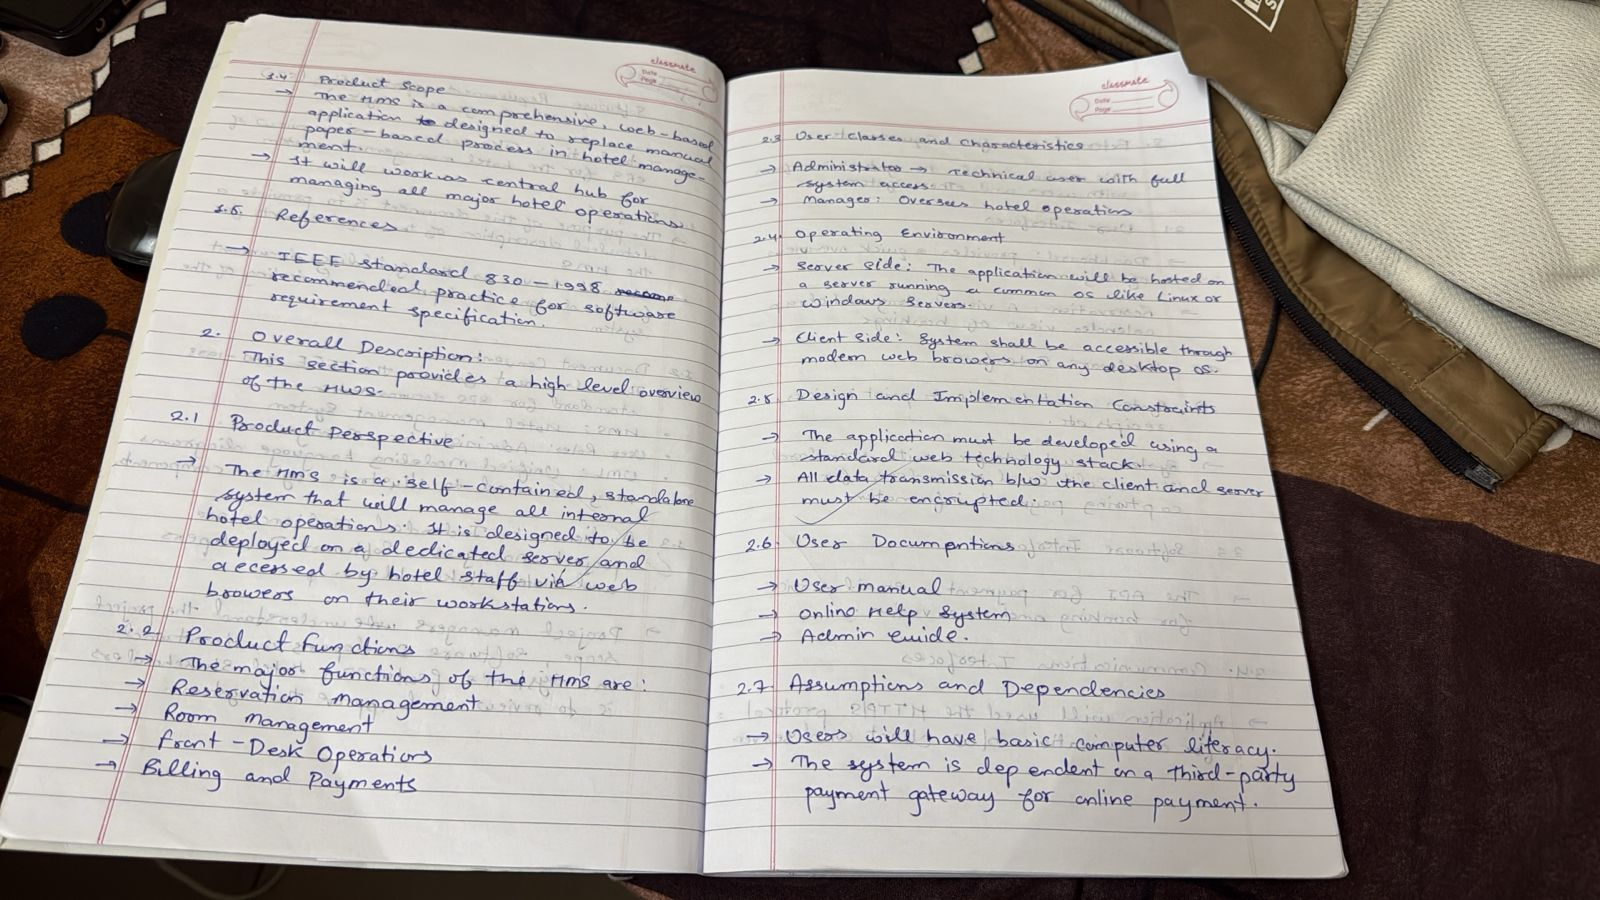 classmate
Date
Page
1.4 Product Scope
→ The HMS is a comprehensive, web-based
application to designed to replace manual
paper-based process in hotel manage-
ment.
→ It will work as central hub for
managing all major hotel operations.
1.5. References
→ IEEE standard 830-1998
recommended practice for software
requirement specification.
2. Overall Description:
This section provides a high level overview
of the HWS.
2.1 Product Perspective
→ The HMS is a self-contained, standalone
system that will manage all internal
hotel operations. It is designed to be
deployed on a dedicated server and
accessed by hotel staff via web
browers on their workstations.
2.2 Product functions
→ The major functions of the HMS are:
→ Reservation Management
→ Room Management
→ front-Desk Operations
→ Billing and Payments
classmate
Date
Page
2.3 User Classes and Characteristics
→ Administrator → technical user with full
system access
→ Manager: Oversees hotel operations
2.4 Operating Environment
→ Server Side: The application will be hosted on
a server running a common OS like Linux or
Windows Servers.
→ Client Side: System shall be accessible through
modern web browers on any desktop OS.
2.5. Design and Implementation Constraints
→ The application must be developed using a
standard web technology stack.
→ All data transmission b/w the client and server
must be encrupted.
2.6 User Documentions
→ User manual
→ Online Help System
→ Admin Guide.
2.7 Assumptions and Dependencies
→ Users will have basic computer literacy.
→ The system is dependent on a third-party
payment gateway for online payment.